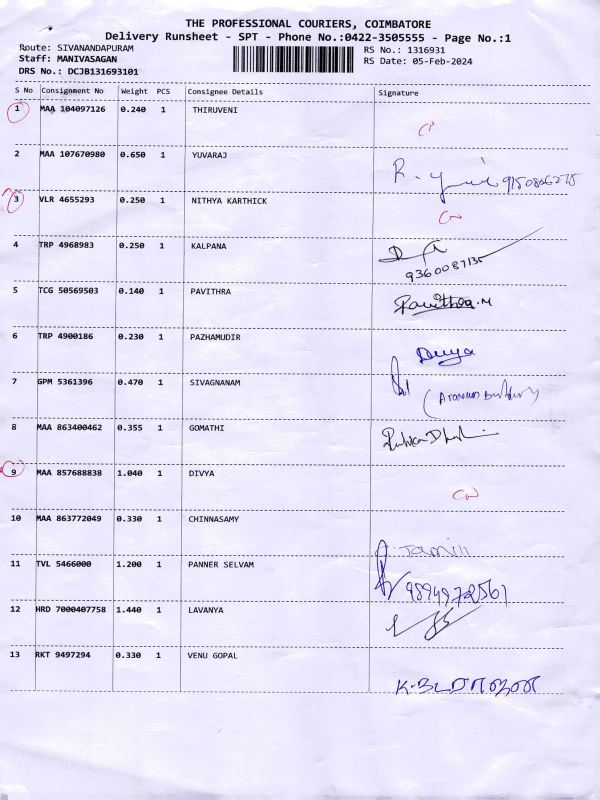 THE PROFESSIONAL COURIERS, COIMBATORE
Delivery Runsheet - SPT - Phone No.:0422-3505555 - Page No.:1
Route: SIVANANDAPURAM
RS No.: 1316931
Staff: MANIVASAGAN
RS Date: 05-Feb-2024
DRS No.: DCJB131693101
S No Consignment No Weight PCS Consignee Details Signature
1 MAA 104097126 0.240 1 THIRUVENI
2 MAA 107670980 0.650 1 YUVARAJ
R. 9150806275
3 VLR 4655293 0.250 1 NITHYA KARTHICK
4 TRP 4968983 0.250 1 KALPANA
9360087135
5 TCG 50569503 0.140 1 PAVITHRA
Pavithra.M
6 TRP 4900186 0.230 1 PAZHAMUDIR
Divya
7 GPM 5361396 0.470 1 SIVAGNANAM
8 MAA 863400462 0.355 1 GOMATHI
9 MAA 857688838 1.040 1 DIVYA
10 MAA 863772049 0.330 1 CHINNASAMY
11 TVL 5466000 1.200 1 PANNER SELVAM
9894972561
12 HRD 7000407758 1.440 1 LAVANYA
13 RKT 9497294 0.330 1 VENU GOPAL